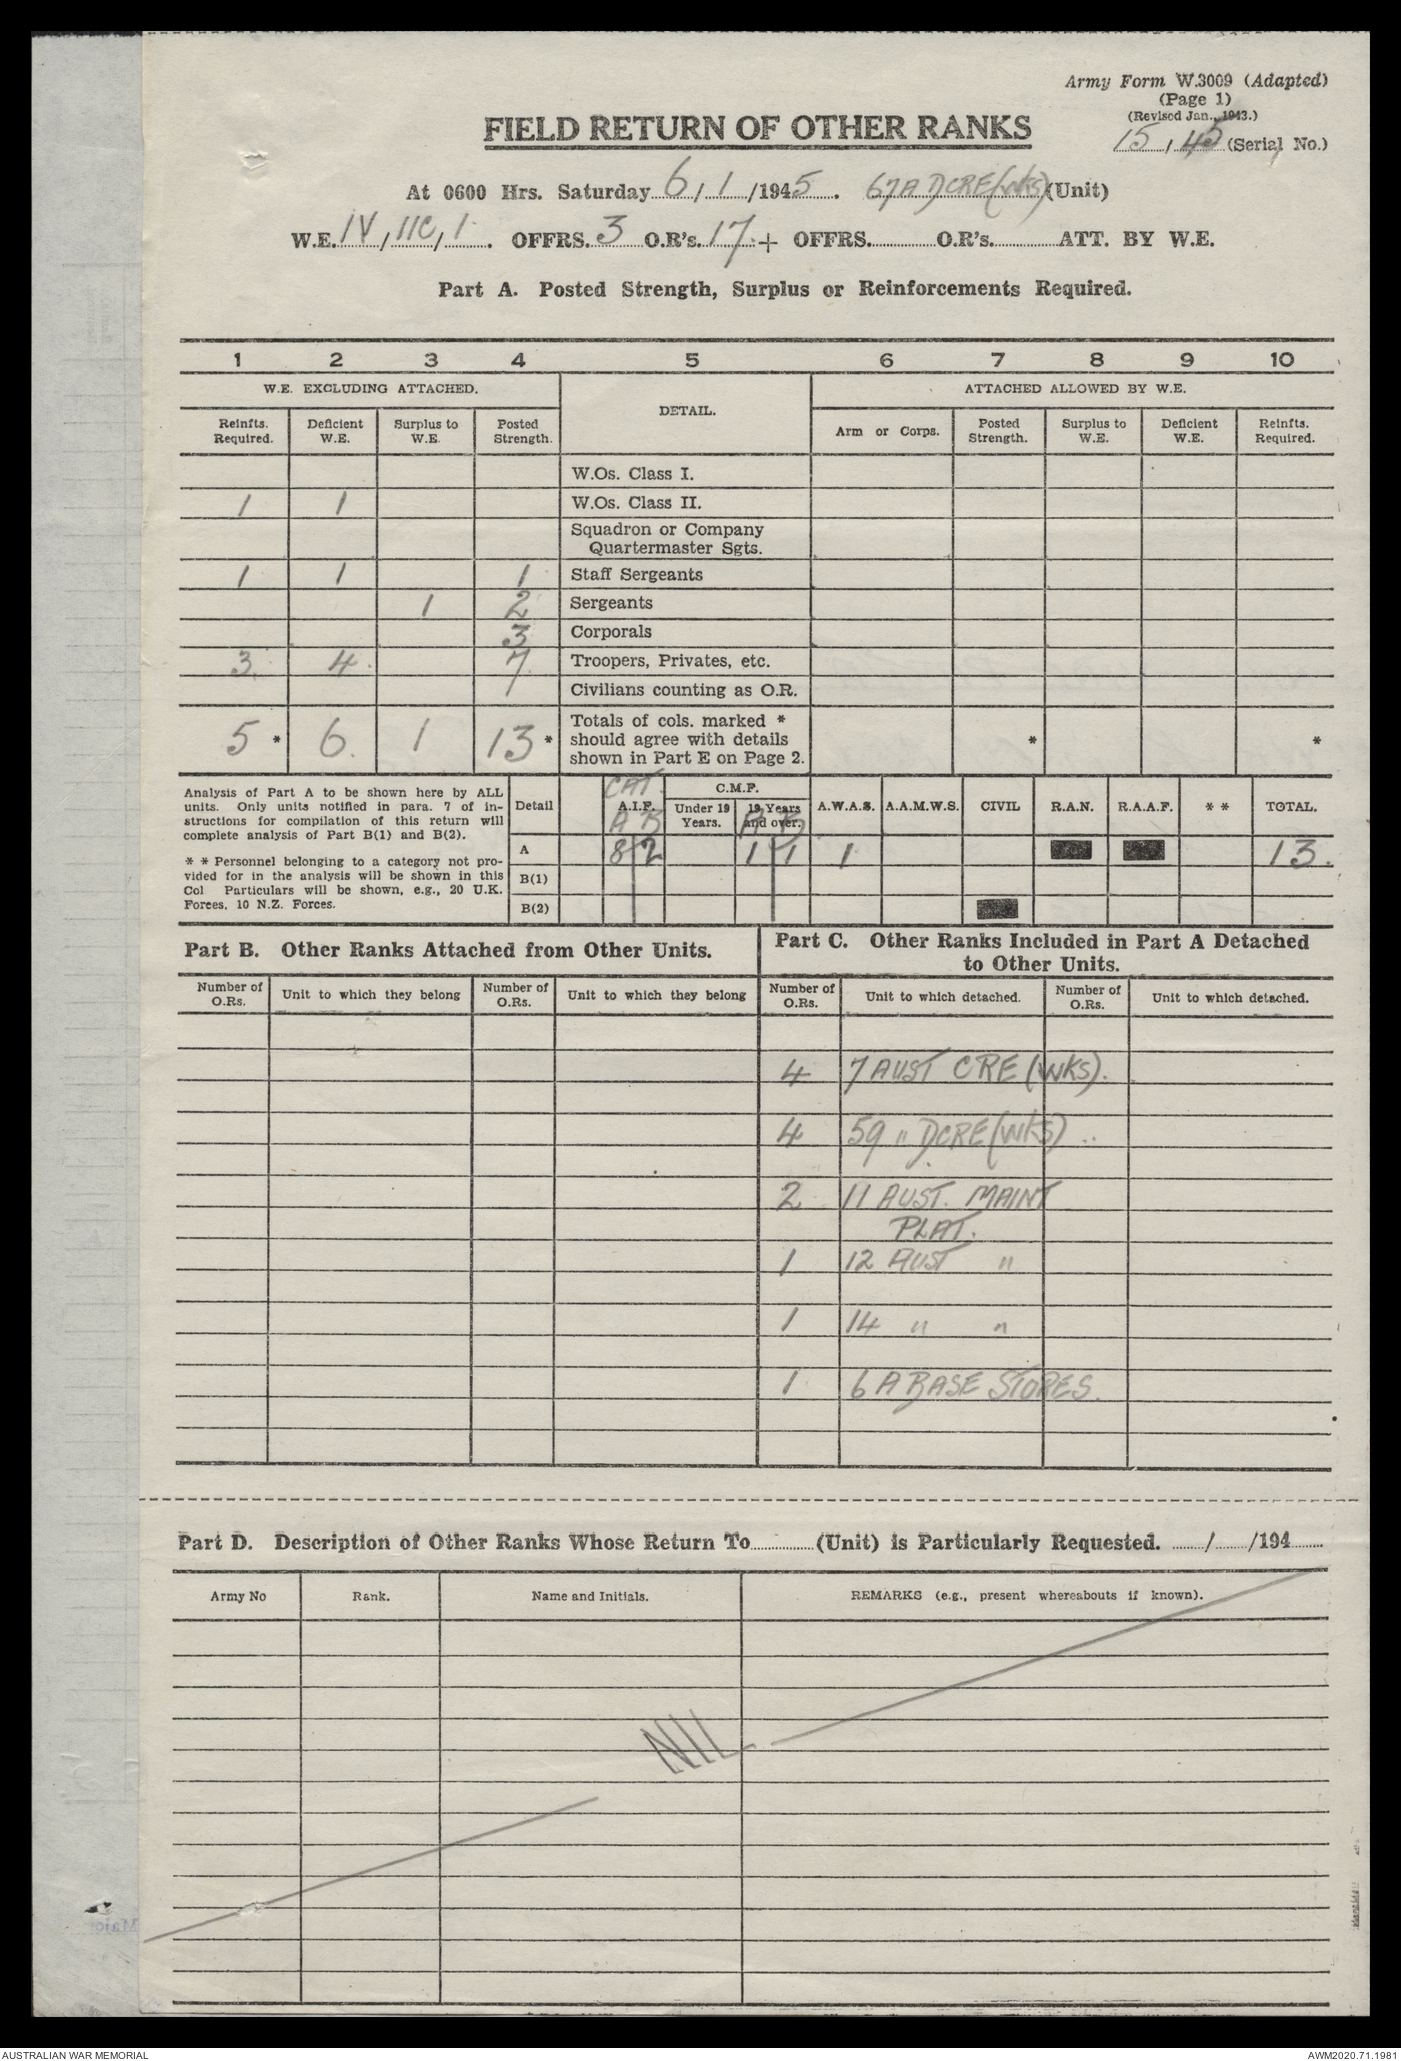 Army Form W.3009 (Adapted)
(Page 1)
(Revised Jan., 1943.)
15 / 45 (Serial No.)
FIELD RETURN OF OTHER RANKS
At 0600 Hrs. Saturday 6 / 1 /1945. 67 A DCRE (WKS) (Unit)
W.E. IV / IIC / 1. OFFRS. 3 O.R's. 17 + OFFRS. O.R's. ATT. BY W.E.
Part A. Posted Strength, Surplus or Reinforcements Required.
1 2 3 4 5 6 7 8 9 10
W.E. EXCLUDING ATTACHED. DETAIL. ATTACHED ALLOWED BY W.E.
Reinfts. Required. Deficient W.E. Surplus to W.E. Posted Strength. Arm or Corps. Posted Strength. Surplus to W.E. Deficient W.E. Reinfts. Required.
W.Os. Class I.
1 1 W.Os. Class II.
Squadron or Company
Quartermaster Sgts.
1 1 1 Staff Sergeants
1 2 Sergeants
3 Corporals
3 4 7 Troopers, Privates, etc.
Civilians counting as O.R.
5 * 6 1 13 * Totals of cols. marked * should agree with details shown in Part E on Page 2. * *
Analysis of Part A to be shown here by ALL
units. Only units notified in para. 7 of in-
structions for compilation of this return will
complete analysis of Part B(1) and B(2).
* * Personnel belonging to a category not pro-
vided for in the analysis will be shown in this
Col Particulars will be shown, e.g., 20 U.K.
Forces, 10 N.Z. Forces.
CAT. C.M.F.
Detail A.I.F. Under 19 Years. 19 Years and over. A.W.A.S. A.A.M.W.S. CIVIL R.A.N. R.A.A.F. * * TOTAL.
A B A B
A 8 2 1 1 1 13.
B(1)
B(2)
Part B. Other Ranks Attached from Other Units.
Part C. Other Ranks Included in Part A Detached
to Other Units.
Number of O.Rs. Unit to which they belong Number of O.Rs. Unit to which they belong Number of O.Rs. Unit to which detached. Number of O.Rs. Unit to which detached.
4 7 AUST CRE (WKS).
4 59 " DCRE (WKS) ..
2 11 AUST. MAINT
PLAT.
1 12 AUST "
1 14 " "
1 6 A BASE STORES.
Part D. Description of Other Ranks Whose Return To (Unit) is Particularly Requested. / /194
Army No Rank. Name and Initials. REMARKS (e.g., present whereabouts if known).
NIL
Major
AUSTRALIAN WAR MEMORIAL
AWM2020.71.1981